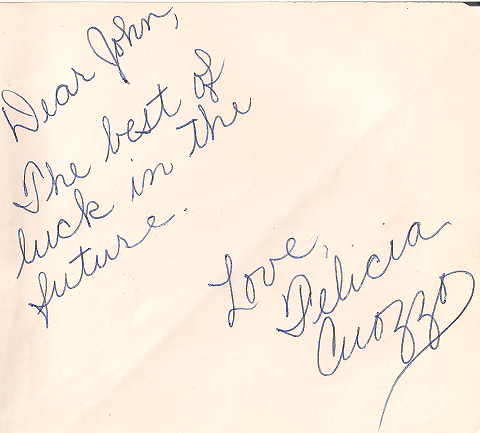 Dear John,
The best of
luck in the
future.
Love,
Felicia
Cuozzo